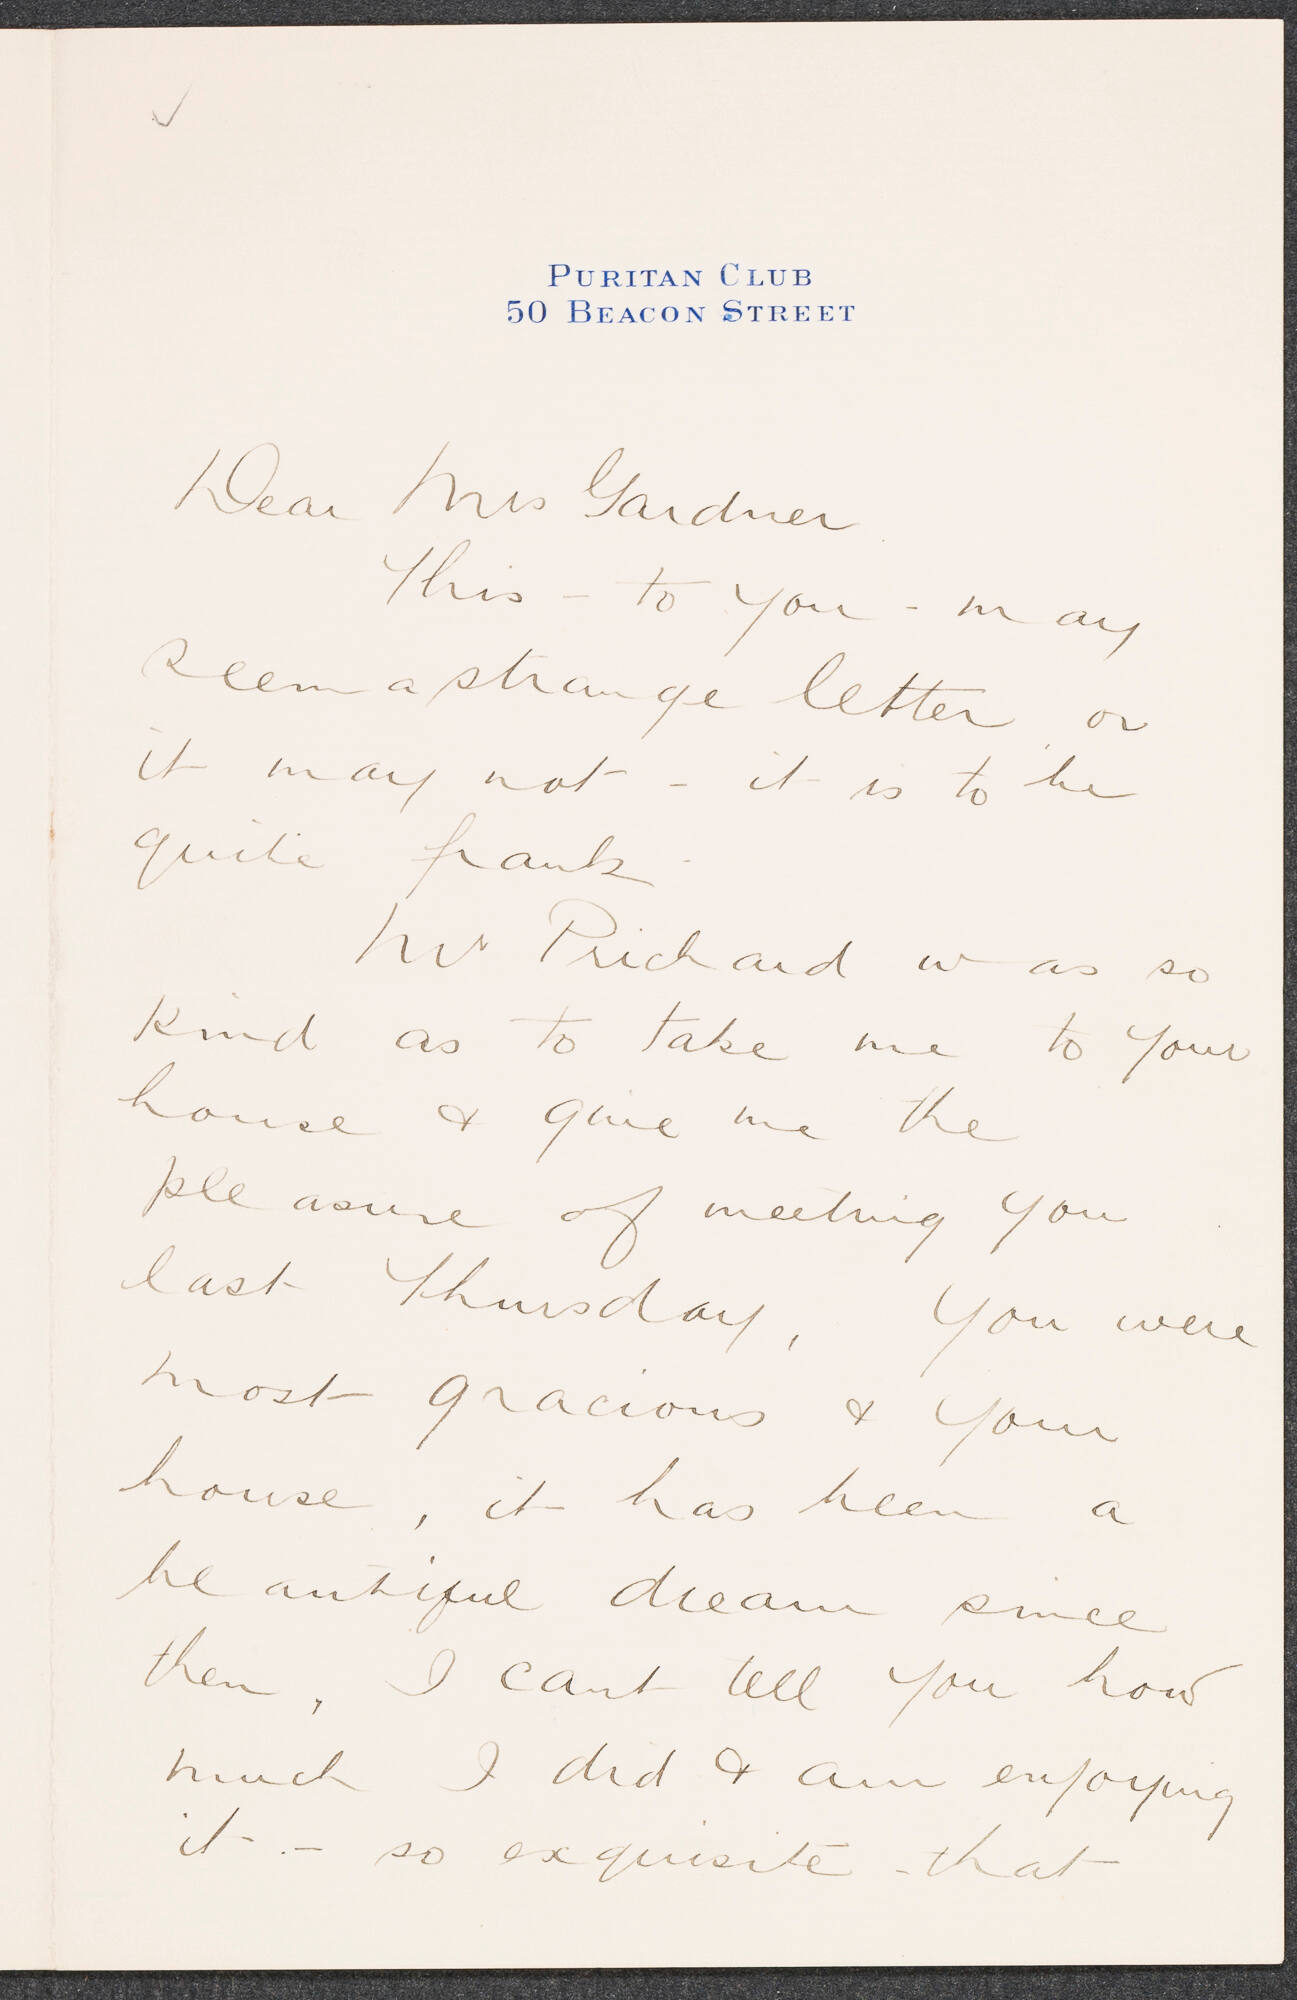 PURITAN CLUB
50 BEACON STREET
Dear Mrs Gardner
This - to you - may
seem a strange letter, or
it may not - it is to be
quite frank -
Mr Prichard was so
kind as to take me to your
house & give me the
pleasure of meeting you
last Thursday, You were
most gracious & your
house, it has been a
beautiful dream since
then, I cant tell you how
much I did & am enjoying
it - so exquisite - that